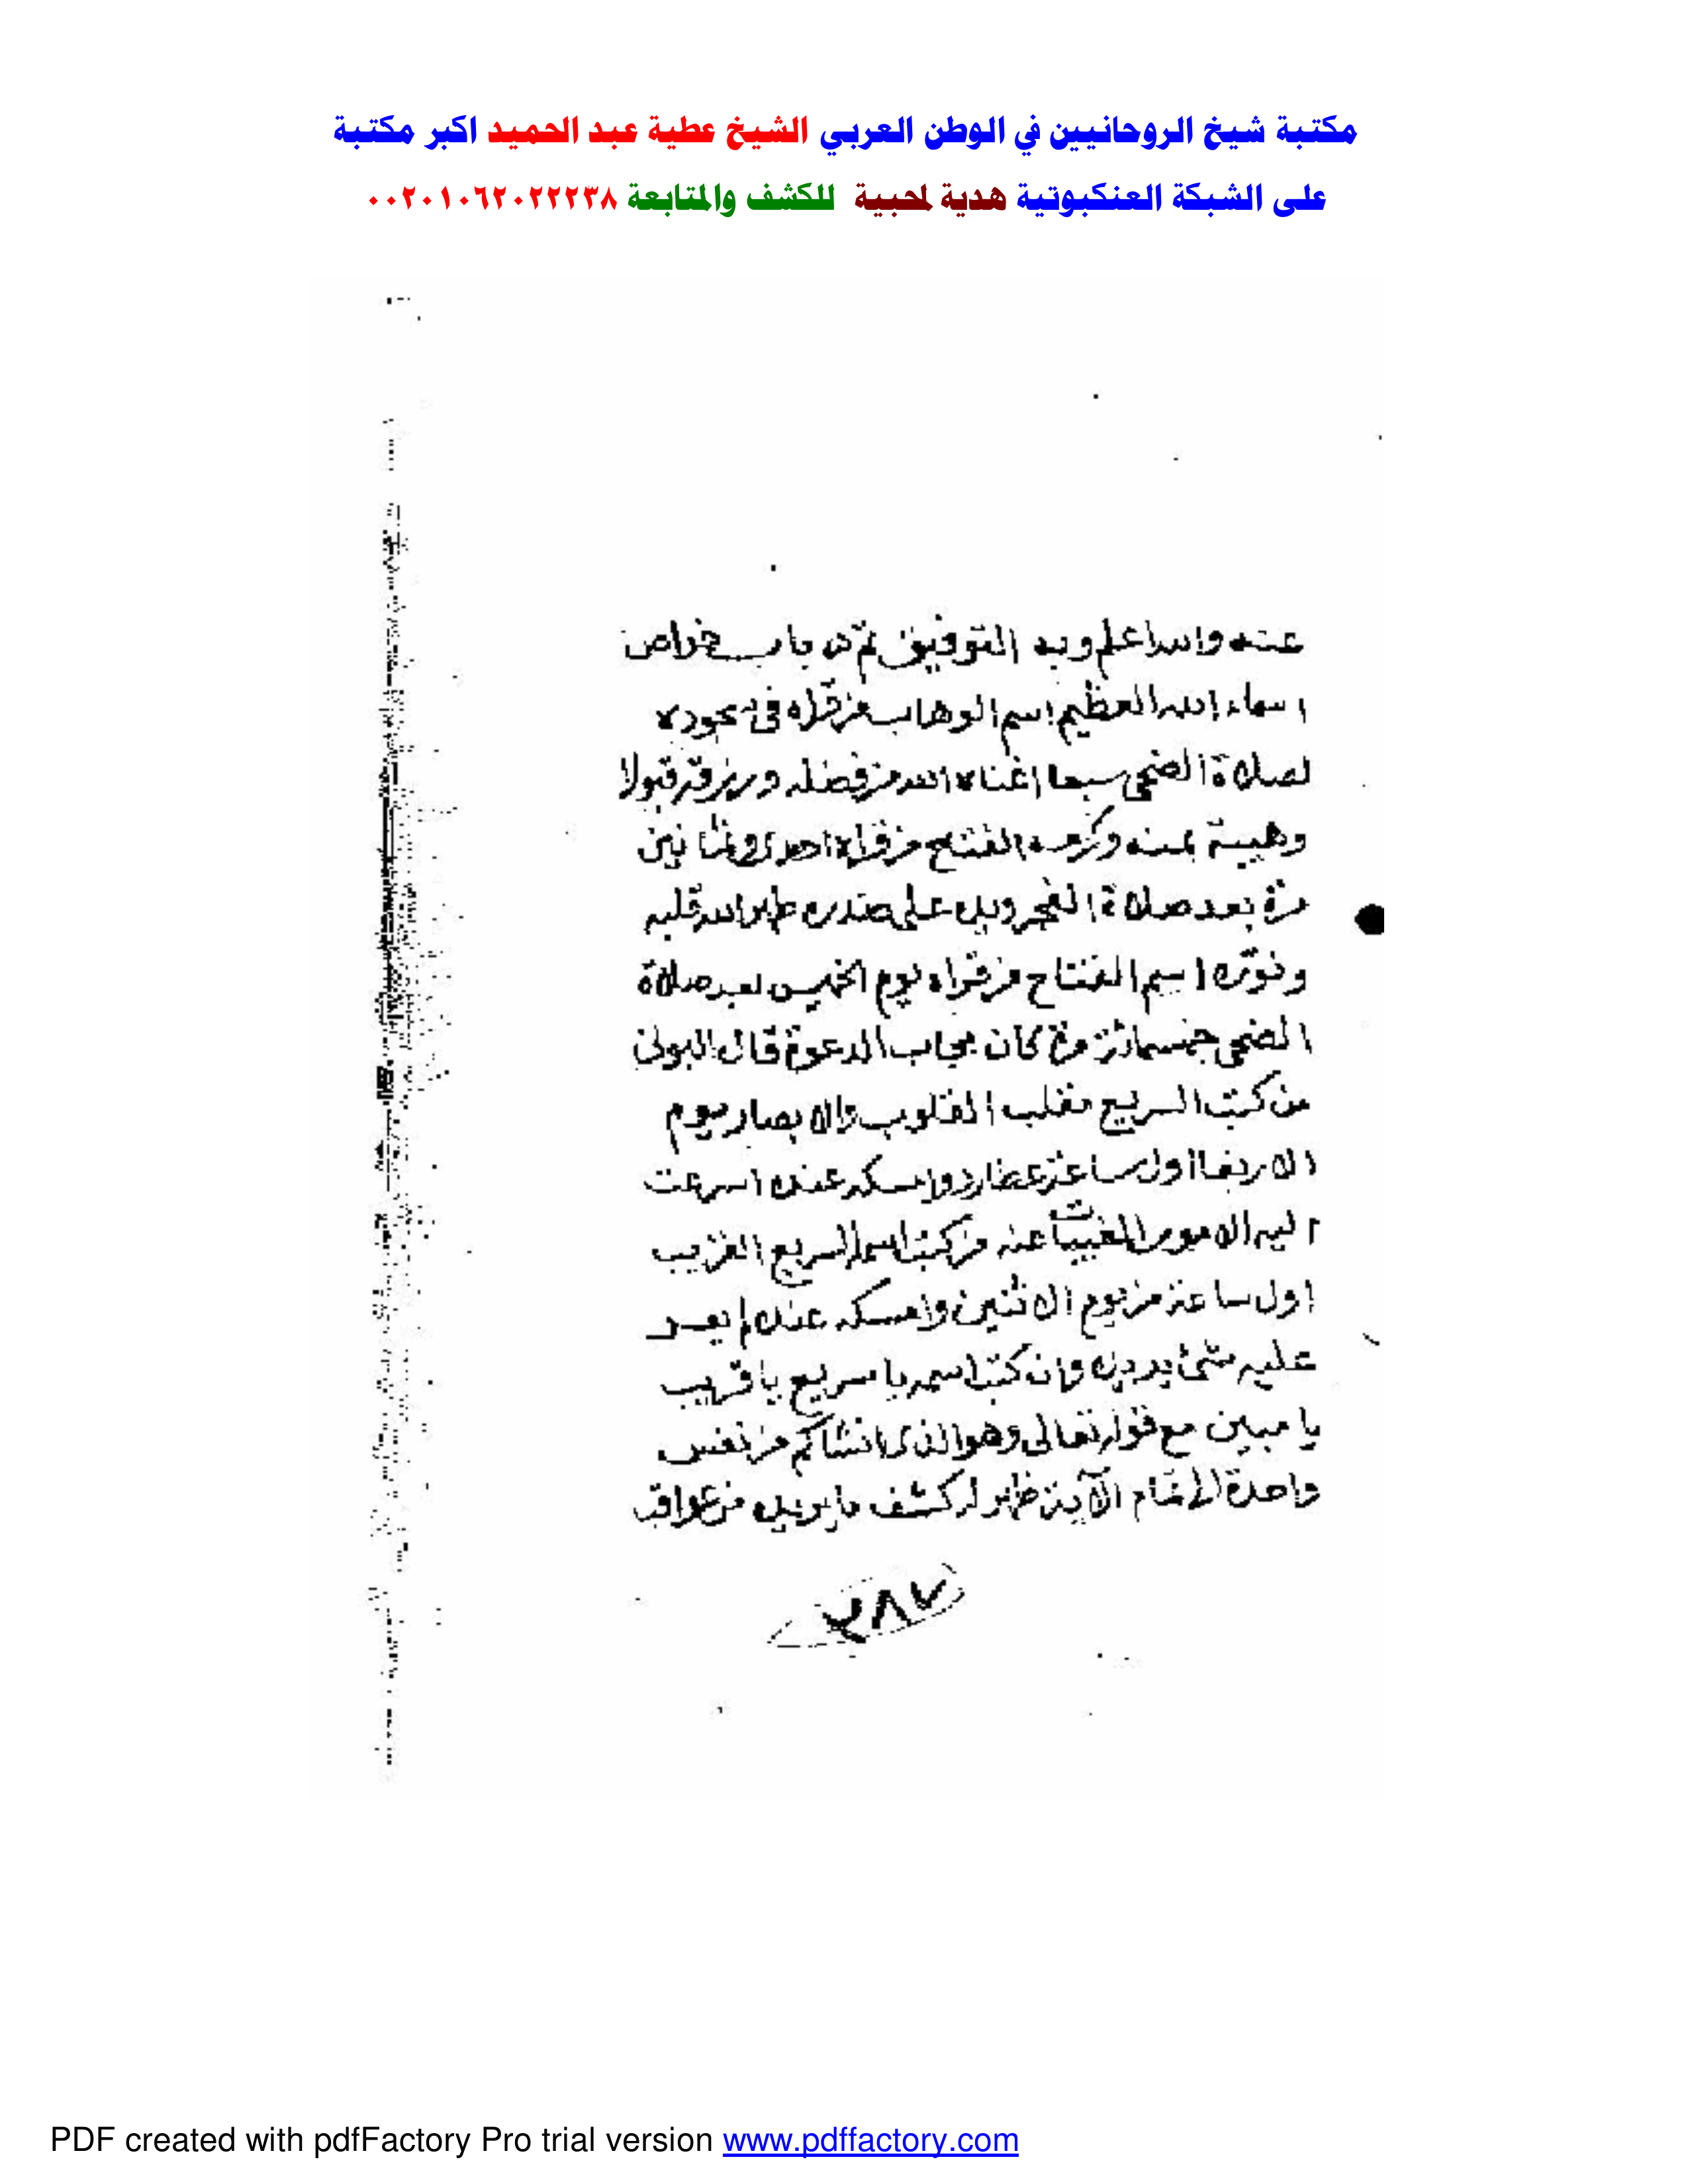 مكتبة شيخ الروحانيين في الوطن العربي الشيخ عطية عبد الحميد اكبر مكتبة
على الشبكة العنكبوتية هدية لمحبية للكشف والمتابعة ٠٠٢٠١٠٦٢٠٢٢٢٣٨
عنه والله اعلم وبه التوفيق تم باب خواص
اسماء الله العظيم اسم الوهاب من قراه في سجوده
لصلاة الضحى سبعا اغناه الله من فضله ورزقه قبولا
وهيبة بمنه وكرمه الفتاح من قراه احدى وثمانين
مرة بعد صلاة الفجر ويده على صدره طهر الله قلبه
ونوره اسم الفتاح من قراه يوم الخميس بعد صلاة
الضحى خمسمائة مرة كان مجاب الدعوة قال البونى
من كتب السريع مقلب القلوب والابصار يوم
الاربعا اول ساعة عطارد وامسكه عنده اسرعت
اليه الامور المغيبات عنه من كتب اسمه السريع القريب
اول ساعة من يوم الاثنين وامسكه عنده لم يعسر
عليه شئ يريده وان كتب اسمه يا سريع يا قريب
يا مبين مع قوله تعالى وهو الذى انشاكم من نفس
واحدة الى تمام الآية ظهر له كشف ما يريده من عواقب
٢٨٧
PDF created with pdfFactory Pro trial version www.pdffactory.com